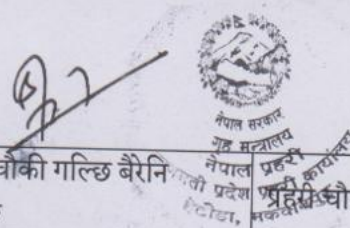 नेपाल सरकार
गृह मन्त्रालय
नेपाल प्रहरी
प्रदेश प्रहरी कार्यालय
चौकी गल्छि बैरेनि
प्रहरी चौ